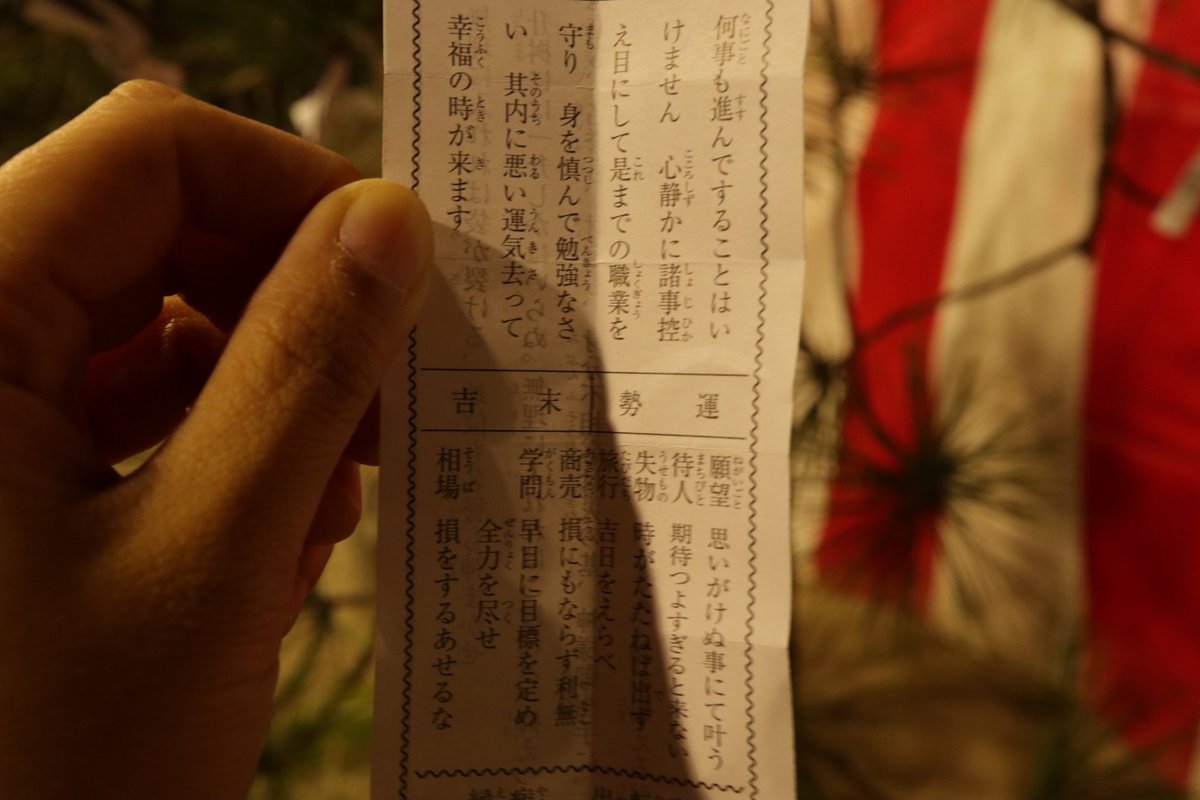 何事も進んですることはい
けません　心静かに諸事控
え目にして是までの職業を
守り　身を慎んで勉強なさ
い　其内に悪い運気去って
幸福の時が来ます
運勢　末吉
願望　思いがけぬ事にて叶う
待人　期待つよすぎると来ない
失物　時がたたねば出ず
旅行　吉日をえらべ
商売　損にもならず利無
学問　早目に目標を定め
全力を尽せ
相場　損をするあせるな